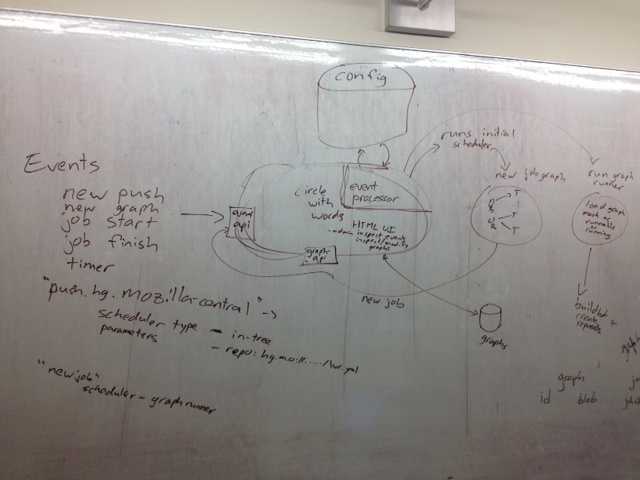 config
Events
new push
new graph
job start
job finish
timer
"push.hg.mozilla-central" ->
scheduler type - in-tree
parameters
- repo: hg.moz://...../
"newjob"
scheduler - graph runner
circle
with
words
event
processor
HTML UI
- admin inspect events
inspect/modify
graphs
api
graph
api
runs initial
scheduler
new job graph
T
T
T
run graph
runner
load graph
mark as
runnable
or
running
new job
graphs
buildbot
create
requests
graph
id blob